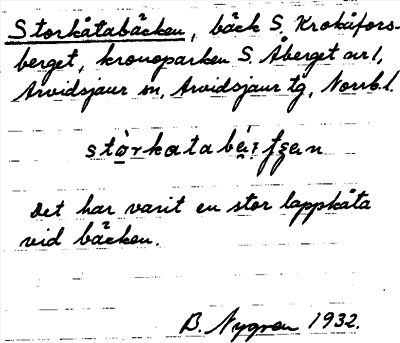 Storkåtabäcken, bäck S. Krokåfors-
berget, kronoparken S. Åberget nr 1,
Arvidsjaur sn, Arvidsjaur tg, Norrb.l.
Det har varit en stor lappkåta
vid bäcken.
B. Nygren 1932.